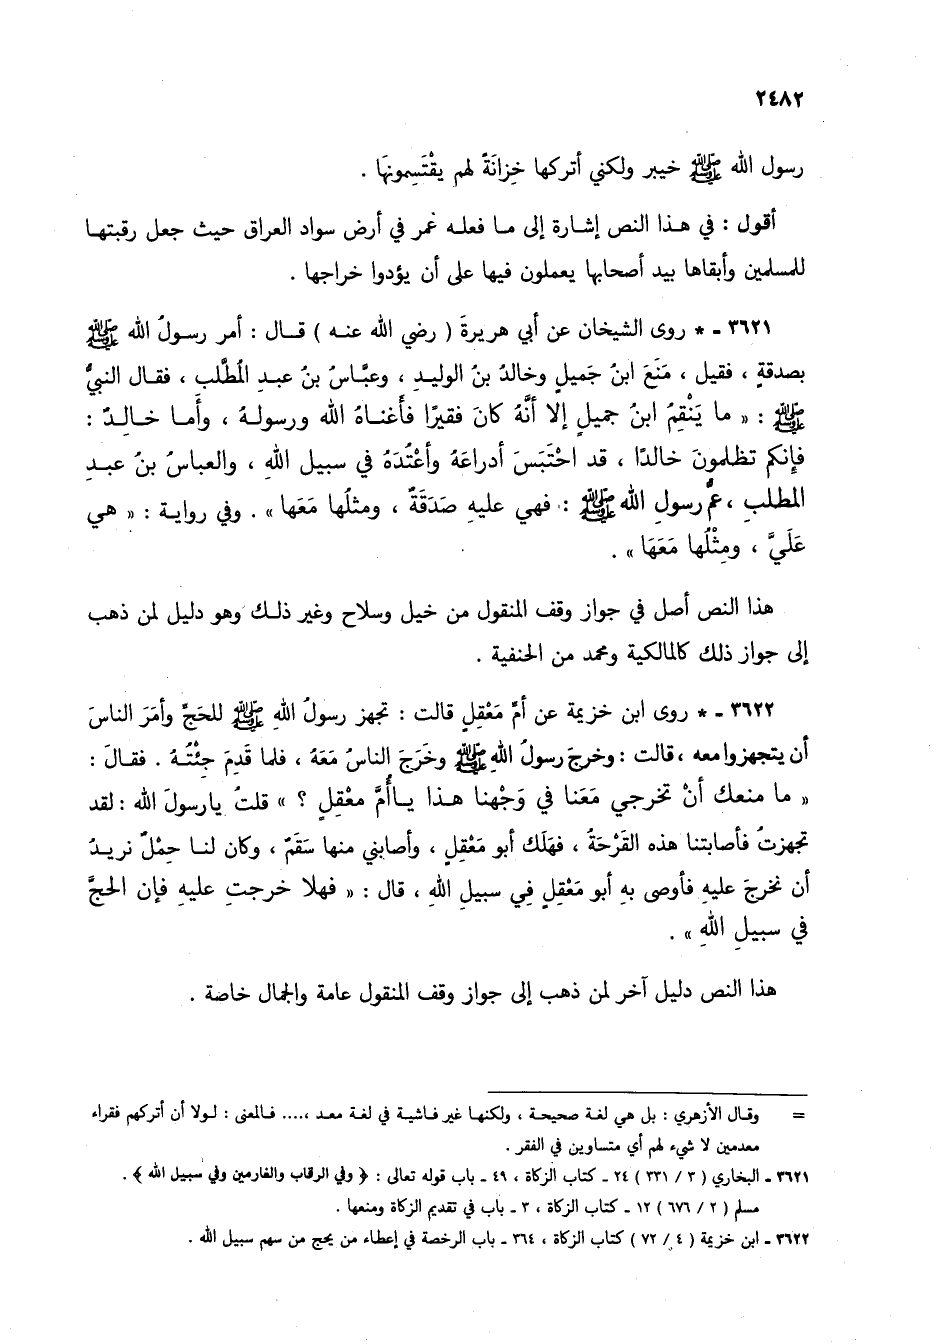 ٢٤٨٢
رسول الله ﷺ خيبر ولكني أتركها خِزانَةً لهم يقْتَسِمونهَا .
أقول : في هـذا النص إشارة إلى مـا فعلـه عُمر في أرض سواد العراق حيث جعل رقبتهـا
للمسلمين وأبقاها بيد أصحابها يعملون فيها على أن يؤدوا خراجها .
٣٦٢١ ـ * روى الشيخان عن أبي هريرةَ ( رضي الله عنـه ) قـال : أمر رسـولُ الله ﷺ
بصدقةٍ ، فقيل ، مَنَعَ ابنُ جَميلٍ وخالدُ بنُ الوليـدِ ، وعبَّـاسُ بنُ عبـدِ المُطَّلب ، فقـال النبيُّ
ﷺ : « ما يَنْقِمُ ابنُ جميلٍ إلا أنَّهُ كانَ فقيرًا فأغناهُ الله ورسولـهُ ، وأمـا خـالـدٌ :
فإنكم تظلمونَ خالدًا ، قد احْتَبَسَ أدراعَهُ وأعْتُدَهُ في سبيل اللهِ ، والعباسُ بنُ عبـدِ
المطلبِ ، عمُّ رسولِ الله ﷺ : فهي عليهِ صَدَقَةٌ ، ومثلُها مَعَها » . وفي روايـة : « هي
عَلَيَّ ، ومِثْلُها مَعَهَا » .
هذا النص أصل في جواز وقف المنقول من خيل وسلاح وغير ذلـك وهو دليل لمن ذهب
إلى جواز ذلك كالمالكية ومحمد من الحنفية .
٣٦٢٢ ـ * روى ابن خزيمة عن أمِّ مَعْقِلٍ قالت : تجهز رسولُ اللهِ ﷺ للحَجِّ وأمَرَ الناسَ
أن يتجهزوا معه ، قالت : وخرجَ رسولُ اللهِ ﷺ وخَرَجَ الناسُ مَعَهُ ، فلما قَدِمَ جِئْتُـهُ . فقـالَ :
« ما منعك أنْ تخرجي مَعَنا في وَجْهنا هـذا يـاأُمَّ معْقِلٍ ؟ » قلتُ يارسولَ الله : لقد
تجهزتُ فأصابتنا هذه القَرْحَةُ ، فهَلَك أبو مَعْقِلٍ ، وأصابني منها سَقَمٌ ، وكان لنـا جمْلٌ نريـدُ
أن نخرجَ عليهِ فأوصى بهِ أبو مَعْقِلٍ في سبيلِ اللهِ ، قال : « فهلا خرجتِ عليهِ فإن الحجَّ
في سبيلِ اللهِ » .
هذا النص دليل آخر لمن ذهب إلى جواز وقف المنقول عامة والجمال خاصة .
= وقـال الأزهري : بل هي لغـة صحيحـة ، ولكنهـا غير فـاشيـة في لغـة معـد ،.... فـالمعنى : لـولا أن أتركهم فقراء
معدمين لا شيء لهم أي متساوين في الفقر .
٣٦٢١ ـ البخاري ( ٣ / ٣٣١ ) ٢٤ ـ كتاب الزكاة ، ٤٩ ـ باب قوله تعالى : ﴿ وفي الرقاب والغارمين وفي سبيل الله ﴾ .
مسلم ( ٢ / ٦٧٦ ) ١٢ ـ كتاب الزكاة ، ٣ ـ باب في تقديم الزكاة ومنعها .
٣٦٢٢ ـ ابن خزيمة ( ٤ / ٧٢ ) كتاب الزكاة ، ٣٦٤ ـ باب الرخصة في إعطاء من يحج من سهم سبيل الله .